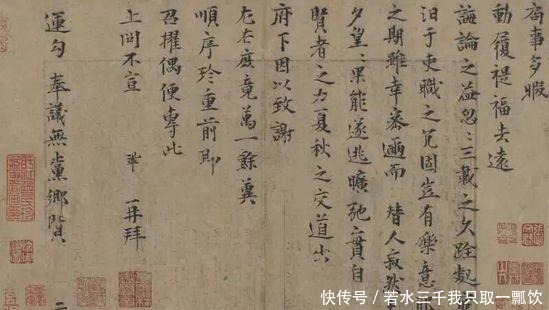 局事多暇
動履禔福去遠
誨論之益忽忽三載之久跧處
汨于吏職之冗固豈有樂意
之期雖幸密邇而替人寂然
夕望望果能遂逃曠弛實自
賢者之力夏秋之交道出
府下因以致謝
左右庶竟萬一餘冀
順序珍重前即
召擢偶便專此
上問不宣 鞏 再拜
運勾奉議無黨鄉賢
二
快传号 / 若水三千我只取一瓢饮